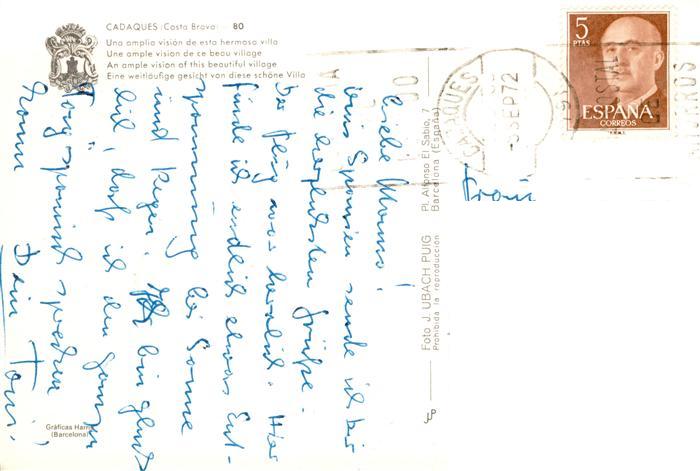 CADAQUES (Costa Brava) 80
Una amplia visión de esta hermosa villa
Une ample vision de ce beau village
An ample vision of this beautiful village
Eine weitläufige gesicht von diese schöne Villa
Liebe Mama!
Aus Spanien sende ich dir
die herzlichsten Grüße.
Der Flug war herrlich. Hier
finde ich endlich etwas Ent-
spannung bei Sonne
und Regen. Ich bin glück-
lich, dass ich den ganzen
Tag spanisch sprechen
kann
Dein Toni
Gráficas
(Barcelona)
Pl. Alfonso El Sabio, 7
Barcelona (España)
Foto J. UBACH PUIG
Prohibida la reproducción
CADAQUES
SEP 72
5
PTAS
ESPAÑA
CORREOS
F.N.M.T.